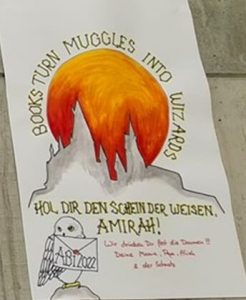 BOOKS TURN MUGGLES INTO WIZARDS
HOL DIR DEN SCHEIN DER WEISEN,
AMIRAH!
Wir drücken Dir fest die Daumen !!!
Deine Mama, Papa,
& der Schatz
ABI 2022